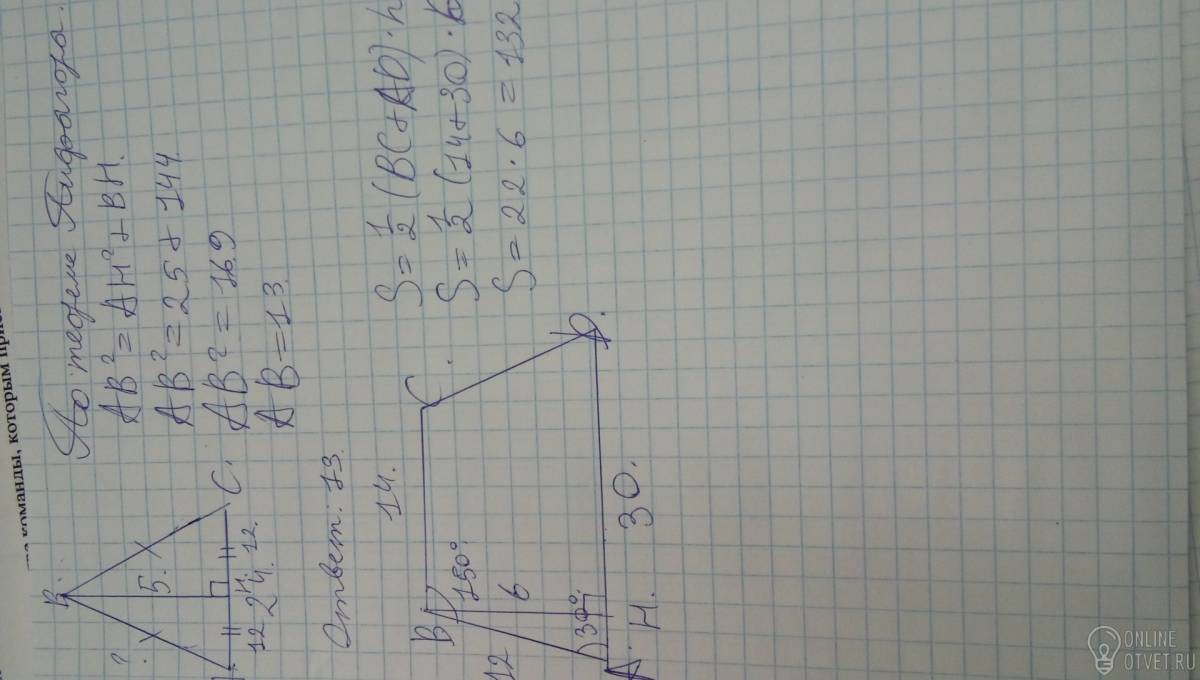 команды, которым
По теореме Пифагора.
AB² = AH² + BH.
AB² = 25 + 144.
AB² = 169
AB = 13.
B.
?
5.
C.
H.
12 24. 12.
Ответ: 13.
14.
B
C
150°
12
6
30°
A.
H.
30.
D.
S = 1/2 (BC + AD) · h
S = 1/2 (14 + 30) · 6
S = 22 · 6 = 132
ONLINE
OTVET.RU